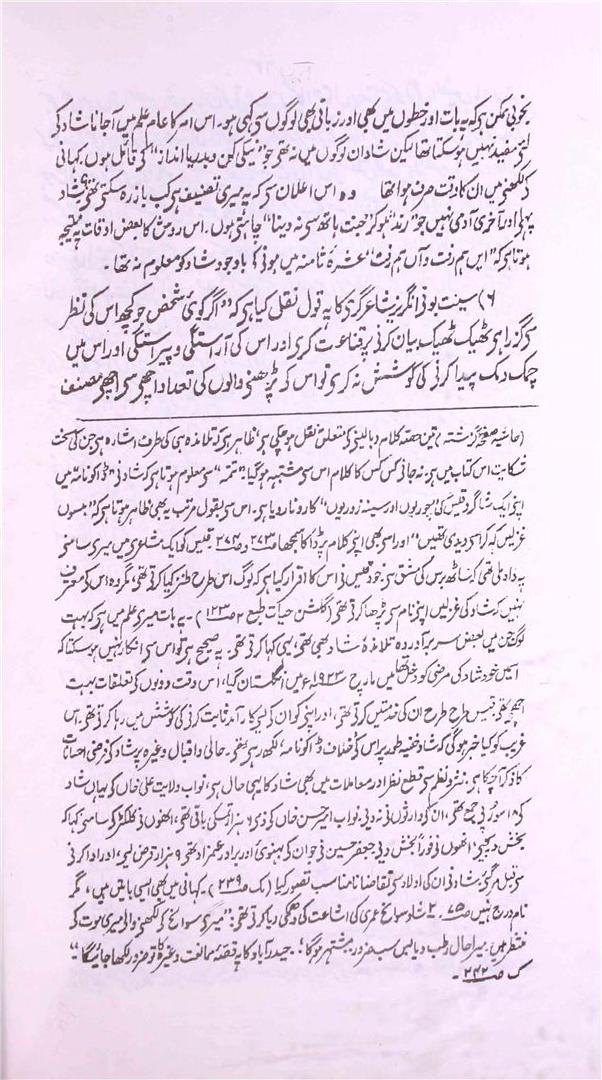 بخوبی ممکن ہی کہ یہ بات اور خطوں میں بھی اور زبانی بھی لوگوں سی کہی ہو۔ اس امر کا عام علم میں آجانا شاد کی
لئی مفید نہیں ہو سکتا تھا لیکن شاد ان لوگوں میں نہ تھی جو "نیکی کن و بدریا انداز" کی قائل ہوں۔ کہانی
کی لکھنی میں ان کا وقت صرف ہوا تھا وہ اس اعلان سی کہ یہ میری تصنیف ہی کب باز رہ سکتی تھی شاد
پہلی اور آخری آدمی نہیں جو "رند" ہو کر "جنت ہاتھ سی نہ دینا" چاہتی ہوں۔ اس روش کا بعض اوقات یہ نتیجہ
ہوتا ہی کہ "ایں ہم رفت و آں ہم رفت" عشرۂ ثامنہ میں ہونی کی باوجود شاد کو معلوم نہ تھا۔
۶) سینٹ بو نی انگریز شاعر گری کا یہ قول نقل کیا ہی کہ "اگر کوئی شخص جو کچھ اس کی نظر
سی گزرا ہی ٹھیک ٹھیک بیان کرنی پر قناعت کری اور اس کی آراستگی و پیراستگی اور اس میں
چمک دمک پیدا کرنی کی کوشش نہ کری تو اس کی پڑھنی والوں کی تعداد اچھی سی اچھی مصنف
(حاشیہ صفحۂ گزشتہ) تین حصہ کلام دبا لینی کی متعلق نقل ہو چکی ہی ظاہر ہی کہ تلامذہ ہی کی طرف اشارہ ہی جن کی سخت
شکایت اس کتاب میں ہی نہ جانی کس کس کا کلام اس سی مشتبہ ہو گیا۔ "تتمہ" سی معلوم ہوتا ہی کہ شاد نی "ڈاکو نامہ" میں
اپنی ایک شاگرد قیس کی "چوریوں اور سینہ زوریوں" کا رونا رویا ہی۔ اس سی بقول مرتب یہ بھی ظاہر ہوتا ہی کہ "بیسوں
غزلیں کہہ کر اسی دیدی تھیں" اور اسی بھی اپنی کلام پر ڈاکا سمجھا ص۲۷۳ و ص۲۷۴ قیس کو ایک مشاعری میں میری سامنی
یہ داد ملی تھی کہ ساٹھ برس کی مشق ہی۔ خود قیس نی اس کا اقرار کیا ہی کہ لوگ اس طرح طنز کیا کرتی تھی، گو وہ اس کی معترف
نہیں کہ شاد کی غزلیں اپنی نام سی پڑھا کرتی تھی (گلشن حیات طبع ۲ ص۱۲۳)۔ یہ بات میری علم میں ہی کہ بہت
لوگ جن میں بعض سر برآوردہ تلامذۂ شاد بھی تھی، یہی کہا کرتی تھی۔ یہ صحیح ہی تو اس سی انکار نہیں ہو سکتا کہ
اسمیں خود شاد کی مرضی کو دخل تھا میں مارچ ۱۹۲۳ء میں انگلستان گیا، اس وقت دونوں کی تعلقات بہت
اچھی تھی۔ قیس طرح طرح ان کی خدمتیں کرتی تھی، اور اپنی کو ان کی لئی کارآمد ثابت کرنی کی کوشش میں رہا کرتی تھی۔ اس
غریب کو کیا خبر ہو گی کہ شاد خفیہ طور پر اس کی خلاف ڈاکو نامہ لکھ رہی تھی۔ حالی و اقبال وغیرہ پر شاد کی فرضی احسانات
کا ذکر آ چکا ہی۔ نثر و نظم سی قطع نظر اور معاملات میں بھی شاد کا یہی حال ہی۔ نواب ولایت علی خاں کی یہاں شاد
کی ۱۸ سو روپی جمع تھی، ان کی وارثوں نی نہ دیی۔ نواب امیر حسن خاں کی ذمی ۶ ہزار تمسکی باقی تھی، انھوں نی کلکٹر کی سامنی کہا کہ
بخش دیجیی، انھوں نی فوراً بخش دیی جعفر حسین نی جو ان کی بہنوئی اور برادر عمزاد تھی ۹ ہزار قرض لیی، اور ادا کرنی
سی قبل مر گئی، شاد نی ان کی اولاد سی تقاضا نامناسب تصور کیا (مک ص۲۳۹)۔ کہانی میں بھی ایسی باتیں ہیں، مگر
نام درج نہیں ص۷۵۔ ۲ شاد سوانح عمری کی اشاعت کی دھمکی دیا کرتی تھی: "میری سوانح کی لکھنی والی میری موت کی
منتظر ہیں۔ میرا حال رطب و یابس سب ضرور مشتہر ہو گا"، حیدرآباد کا یہ قصۂ ممانعت وغیرہ کا تو ضرور لکھا جائیگا"
مک ص۲۴۲۔